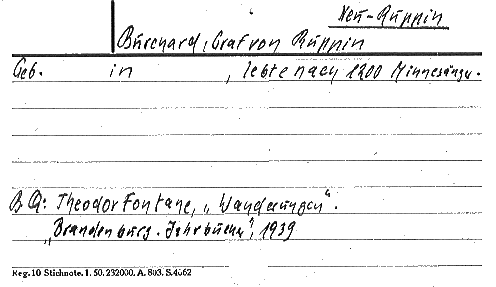 Neu-Ruppin
Burchard, Graf von Ruppin
Geb. in , lebte nach 1200 Minnesänger.
B Q: Theodor Fontane, „Wanderungen".
„Brandenburg. Jahrbücher", 1939
Reg. 10 Stichnote. 1. 50. 232000. A. 803. S. 4062